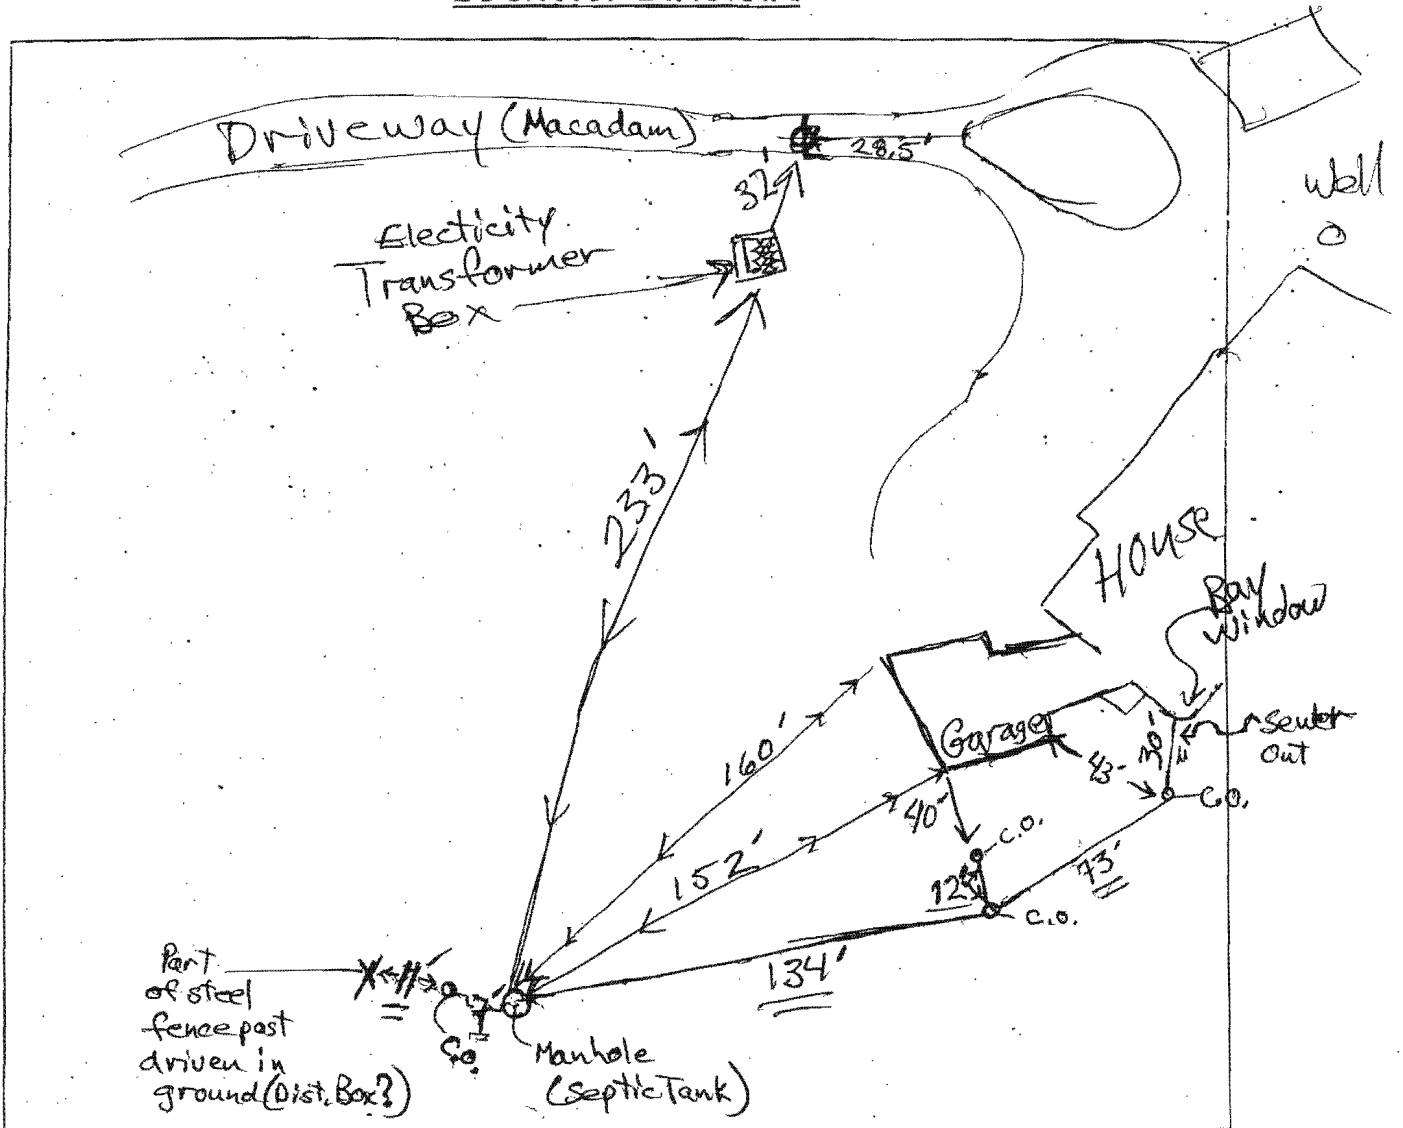 Driveway (Macadam)
28.5'
32'
Well
Electicity
Transformer
Box
233'
House
Bay
Window
160'
Garage
30'
Sewer
Out
43'
C.O.
40'
152'
C.O.
73'
12'
C.O.
134'
Part
of steel
fence post
driven in
ground (Dist. Box?)
11'
7'
C.O.
Manhole
(Septic Tank)